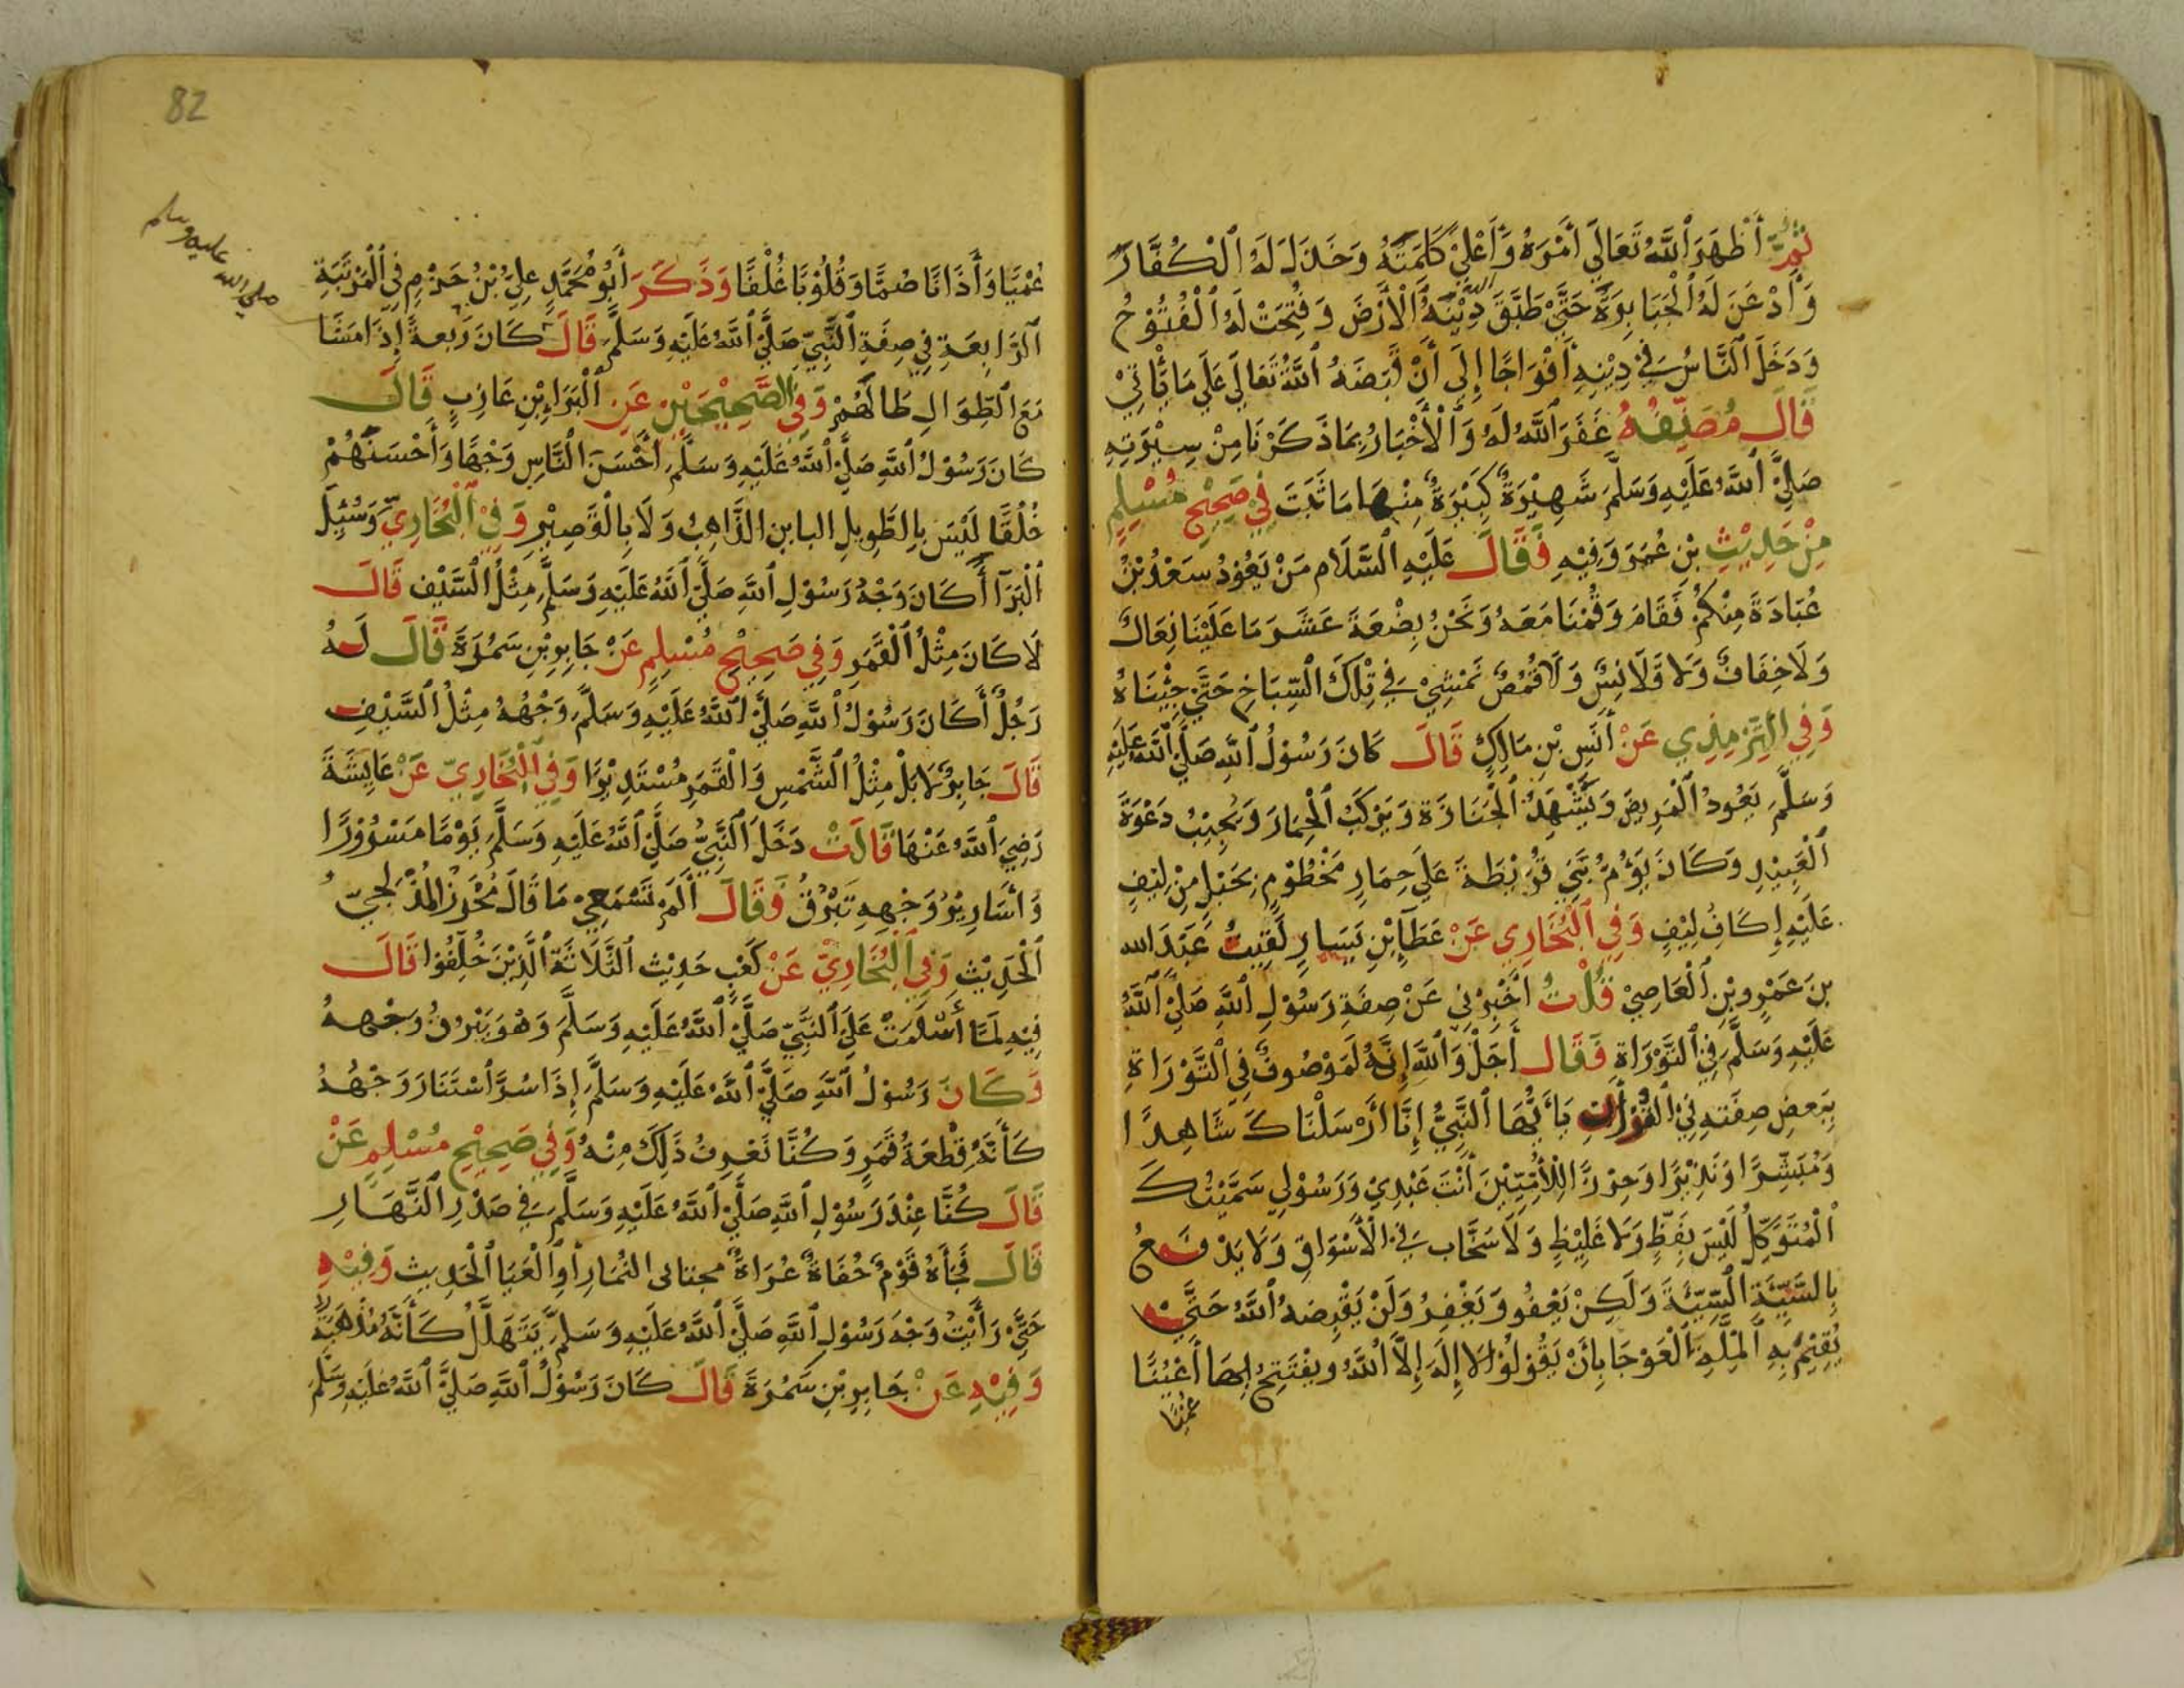 ثُمَّ أَظْهَرَ ٱللَّهُ تَعَالَى أَمْرَهُ وَأَعْلَى كَلِمَتَهُ وَخَذَلَ لَهُ ٱلْكُفَّارَ
وَأَذْعَنَ لَهُ ٱلْجَبَابِرَةُ حَتَّى طَبَّقَ دِيْنُهُ ٱلْأَرْضَ وَفُتِحَتْ لَهُ ٱلْفُتُوْحُ
وَدَخَلَ ٱلنَّاسُ فِي دِيْنِهِ أَفْوَاجًا إِلَى أَنْ قَبَضَهُ ٱللَّهُ تَعَالَى عَلَى مَا يَأْتِي
قَالَ مُصَنِّفُهُ غَفَرَ ٱللَّهُ لَهُ وَٱلْأَخْبَارُ بِمَا ذَكَرْنَا مِنْ سِيْرَتِهِ
صَلَّى ٱللَّهُ عَلَيْهِ وَسَلَّمَ شَهِيْرَةٌ كَبِيْرَةٌ مِنْهَا مَا ثَبَتَ فِي صَحِيْحِ مُسْلِمٍ
مِنْ حَدِيْثِ بْنِ عُمَرَ وَفِيْهِ فَقَالَ عَلَيْهِ ٱلسَّلَام مَنْ يَعُوْدُ سَعْدُ بْنُ
عُبَادَةَ مِنْكُمْ فَقَامَ وَقُمْنَا مَعَهُ وَنَحْنُ بِضْعَةَ عَشَرَ مَا عَلَيْنَا نِعَالٌ
وَلَا خِفَافٌ وَلَا قَلَانِسُ وَلَا قُمُصٌ نَمْشِيْ فِي تِلْكَ ٱلسِّبَاخِ حَتَّى جِئْنَاهُ
وَفِي ٱلتِّرْمِذِي عَنْ أَنَسِ بْنِ مَالِكٍ قَالَ كَانَ رَسُوْلُ ٱللَّهِ صَلَّى ٱللَّهُ عَلَيْهِ
وَسَلَّمَ يَعُودُ ٱلْمَرِيضَ وَيَشْهَدُ ٱلْجَنَازَةَ وَيَرْكَبُ ٱلْحِمَارَ وَيُجِيْبُ دَعْوَةَ
ٱلْعَبِيْدِ وَكَانَ يَوْمَ بَنِي قُرَيْظَةَ عَلَى حِمَارٍ مَخْطُوْمٍ بِحَبْلٍ مِنْ لِيْفٍ
عَلَيْهِ إِكَافُ لِيْفٍ وَفِي ٱلْبُخَارِي عَنْ عَطَآءِ بْنِ يَسَارٍ لَقِيتُ عَبْدَ الله
بنَ عَمْرِو بْنِ ٱلْعَاصِيْ قُلْتُ أَخْبِرْنِي عَنْ صِفَةِ رَسُوْلِ ٱللَّهِ صَلَّى ٱللَّهُ
عَلَيْهِ وَسَلَّمَ فِي ٱلتَّوْرَاةِ فَقَالَ أَجَلْ وَٱللَّهِ إِنَّهُ لَمَوْصُوفٌ فِي ٱلتَّوْرَاةِ
بِبَعضِ صِفَتِهِ فِي ٱلْقُرْآنِ يَا أَيُّهَا ٱلنَّبِيُّ إِنَّا أَرْسَلْنَاكَ شَاهِدًا
وَمُبَشِّرًا وَنَذِيْرًا وَحِرْزًا لِلْأُمِّيِّيْنَ أَنْتَ عَبْدِيْ وَرَسُوْلِي سَمَّيْتُكَ
ٱلْمُتَوَكِّلُ لَيْسَ بِفَظٍّ وَلَا غَلِيْظٍ وَلَا سَخَّابٍ فِي ٱلْأَسْوَاقِ وَلَا يَدْفَعُ
بِالسَّيِّئَةِ السَّيِّئَةَ وَلَكِنْ يَعْفُو وَيَغْفِرُ وَلَنْ يَقْبِضَهُ ٱللَّهُ حَتَّى
يُقِيْمَ بِهِ ٱلْمِلَّةَ ٱلْعَوْجَا بِأَنْ يَقُوْلُوْا لَا إِلَهَ إِلَّا ٱللَّهُ وَيفْتَتِحُ بِهَا أَعْيُنًا
عُمْيًا
82
صلى الله عليه وسلم
عُمْيًا وَأٓذَانًا صُمًّا وَقُلُوْبًا غُلْفًا وَذَكَرَ أَبُوْ مُحَمَّدٍ عَلِيُّ بْنُ حَزْمٍ فِي ٱلْمَرْتَبَةِ
ٱلرَّابِعَةِ فِي صِفَةِ ٱلنَّبِيِّ صَلَّى ٱللَّهُ عَلَيْهِ وَسَلَّمَ قَالَ كَانَ رَبعةً إِذَا مَشَا
مَعَ ٱلطِّوَالِ طَالَهُمْ وَفِي ٱلصَّحِيْحَيْنِ عَنِ ٱلْبَرَاءِ بْنِ عَازِبٍ قَالَ
كَانَ رَسُوْلُ ٱللَّهِ صَلَّى ٱللَّهُ عَلَيْهِ وَسَلَّمَ أَحْسَنَ ٱلنَّاسِ وَجْهًا وَأَحْسَنَهُمْ
خُلُقًا لَيْسَ بِالطَّوِيلِ الباين الذَّاهِبِ وَلَا بِالْقَصِيْرِ وَفِيْ ٱلْبُخَارِيِّ وَسُئِلَ
ٱلْبَرَآ أَكَانَ وَجْهُ رَسُوْلِ ٱللَّهِ صَلَّى ٱللَّهُ عَلَيْهِ وَسَلَّمَ مِثْلُ ٱلسَّيْفِ قَالَ
لَا كَانَ مِثْلُ ٱلْقَمَرِ وَفِي صَحِيْحِ مُسْلِمٍ عَنْ جَابِرِ بْنِ سَمُرَةَ قَالَ لَهُ
رَجُلٌ أَكَانَ رَسُوْلُ ٱللَّهِ صَلَّى ٱللَّهُ عَلَيْهِ وَسَلَّمَ وَجْهُهُ مِثْلُ ٱلسَّيْفِ
قَالَ جَابِرٌ لَا بَلْ مِثْلُ ٱلشَّمْسِ وَالْقَمَرِ مُسْتَدِيْرًا وَفِي ٱلْبُخَارِيِّ عَنْ عَايِشَةَ
رَضِيَ ٱللَّهُ عَنْهَا قَالَتْ دَخَلَ ٱلنَّبِيُّ صَلَّى ٱللَّهُ عَلَيْهِ وَسَلَّمَ يَوْمًا مَسْرُوْرًا
وَأَسَارِيْرُ وَجْهِهِ تَبْرُقُ وَقَالَ أَلَمْ تَسْمَعِيْ مَا قَالَ مُحْرِزُ الْمُدْلِجِيُّ
ٱلْحَدِيْثِ وَفِي ٱلْبُخَارِيِّ عَنْ كَعْبِ حَدِيْثِ ٱلثَّلَاثَةِ ٱلَّذِيْنَ خُلِّفُوْا قَالَ
فِيْهِ لَمَّا أَسْلَمَتْ عَلَى ٱلنَّبِيِّ صَلَّى ٱللَّهُ عَلَيْهِ وَسَلَّمَ وَهُوَ يَبْرُقُ وَجْهُهُ
وَكَانَ رَسُوْلُ ٱللَّهِ صَلَّى ٱللَّهُ عَلَيْهِ وَسَلَّمَ إِذَا سُرَّ ٱسْتَنَارَ وَجْهُهُ
كَأَنَّهُ قِطْعَةُ قَمَرٍ وَكُنَّا نَعْرِفُ ذَلِكَ مِنْهُ وَفِي صَحِيْحِ مُسْلِمٍ عَنْ
قَالَ كُنَّا عِنْدَ رَسُوْلِ ٱللَّهِ صَلَّى ٱللَّهُ عَلَيْهِ وَسَلَّمَ فِي صَدْرِ ٱلنَّهَارِ
قَالَ فَجَأَهُ قَوْمٌ حُفَاةٌ عُرَاةٌ مجتابى النِّمَارِ أَوِ ٱلْعَبَا ٱلْحَدِيث وَفِيْهِ
حَتَّى رَأَيْتُ وَجْهَ رَسُوْلِ ٱللَّهِ صَلَّى ٱللَّهُ عَلَيْهِ وَسَلَّمَ يَتَهَلَّلُ كَأَنَّهُ مُذْهَبَةٌ
وَفِيْهِ عَنْ جَابِرِ بْنِ سَمُرَةَ قَالَ كَانَ رَسُوْلُ ٱللَّهِ صَلَّى ٱللَّهُ عَلَيْهِ وَسَلَّمَ